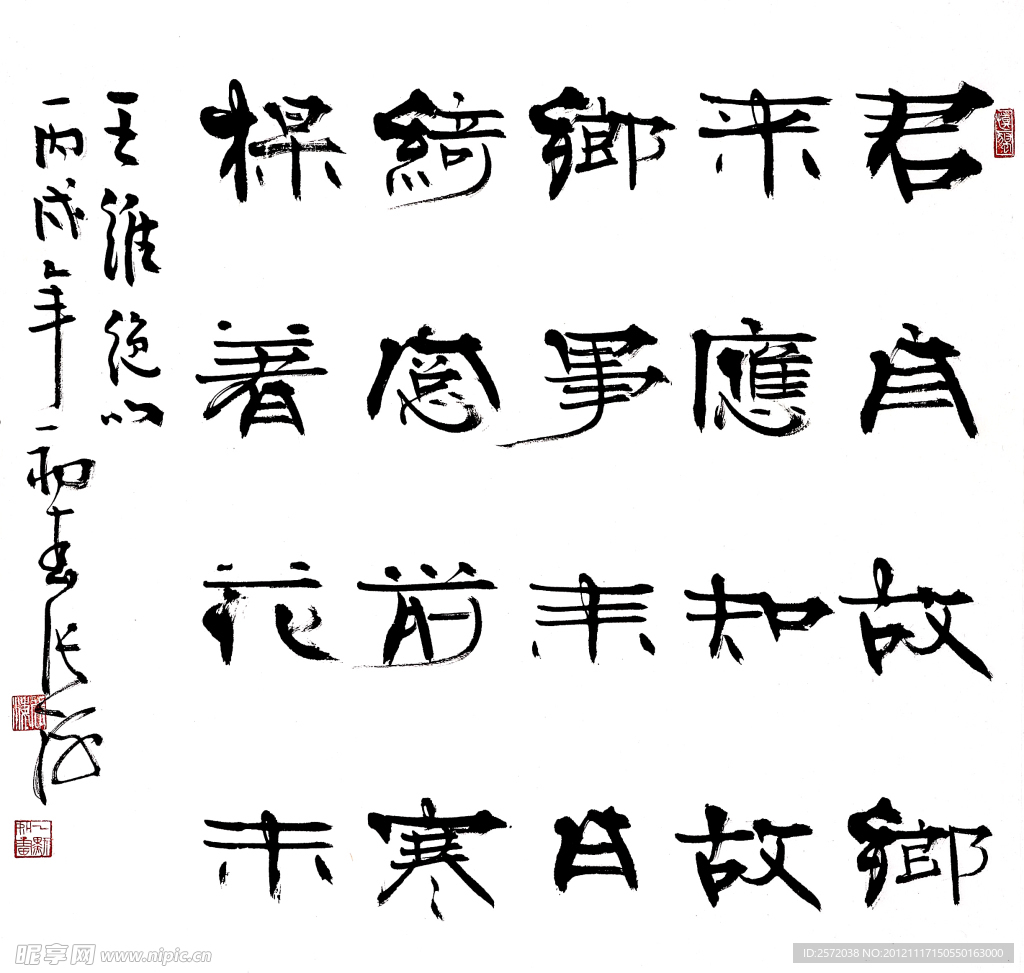 君自故鄉
来應知故
鄉事来日
綺窗前寒
楳著花未
王維绝句
丙戌年初春张
昵享网 www.nipic.cn
ID:2572038 NO:20121117150550163000